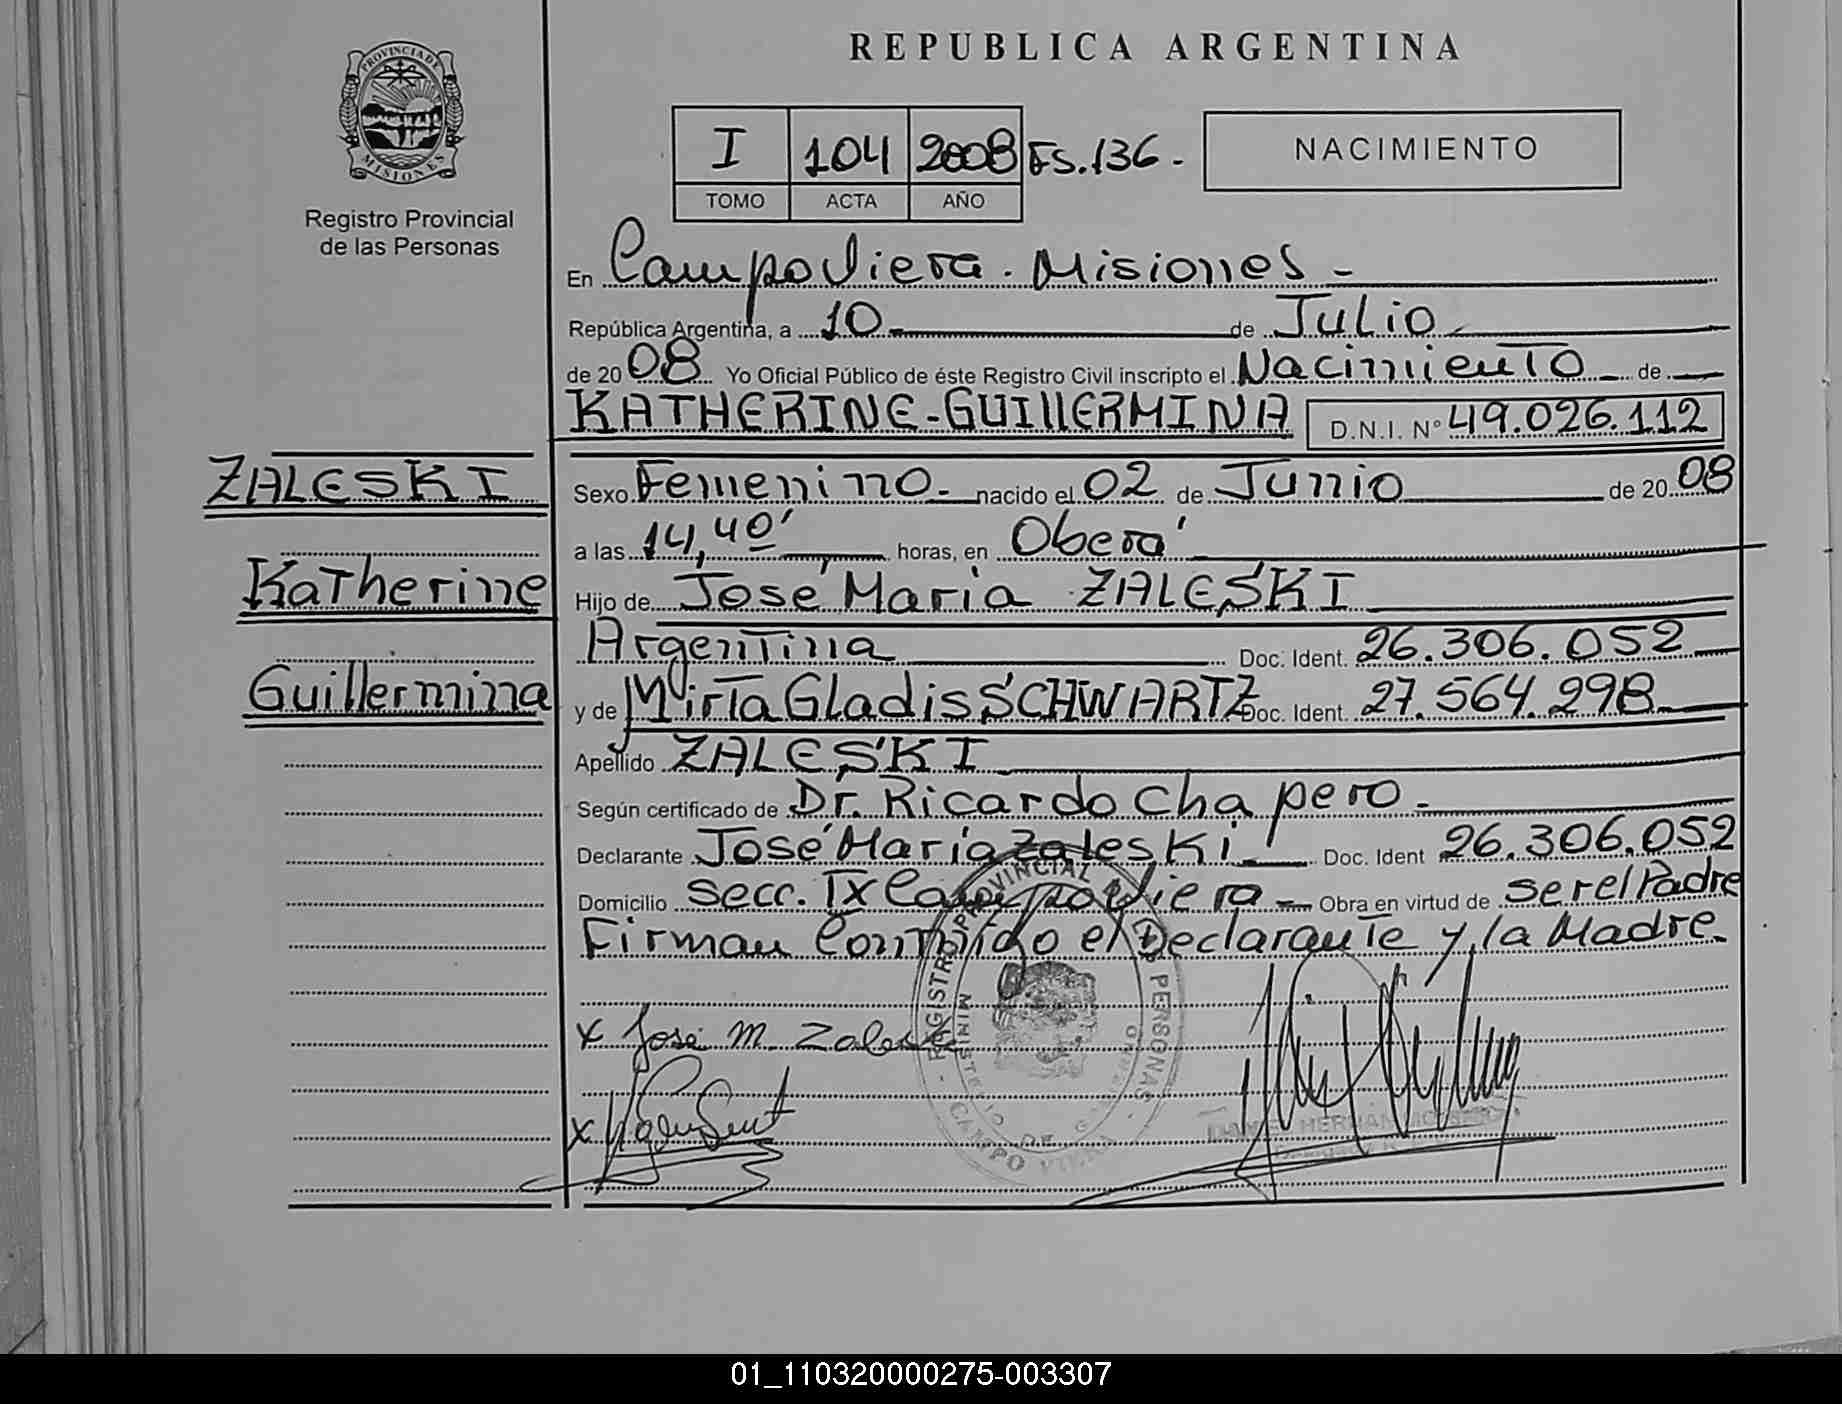 REPUBLICA ARGENTINA
PROVINCIA DE
MISIONES
Registro Provincial
de las Personas
I 104 2008 FS.136.-
TOMO ACTA AÑO
NACIMIENTO
En Campo Viera. Misiones -
República Argentina, a 10 de Julio
de 2008 Yo Oficial Público de éste Registro Civil inscripto el Nacimiento de
KATHERINE-GUILLERMINA D.N.I. N° 49.026.112
ZALESKI
Katherine
Guillermina
Sexo Femenino - nacido el 02 de Junio de 2008
a las 14,40' horas, en Oberá
Hijo de José María ZALESKI
Argentina Doc. Ident. 26.306.052
y de Mirta Gladis SCHWARTZ Doc. Ident. 27.564.298
Apellido ZALESKI
Según certificado de Dr. Ricardo Chapero -
Declarante José María Zaleski Doc. Ident 26.306.052
Domicilio Secc. IX Campo Viera - Obra en virtud de ser el Padre
Firman Conmigo el Declarante y la Madre.
x José M. Zaleski
x
REGISTRO PROVINCIAL DE PERSONAS
MINISTERIO DE
CAMPO VIERA
HERNAN
01_110320000275-003307